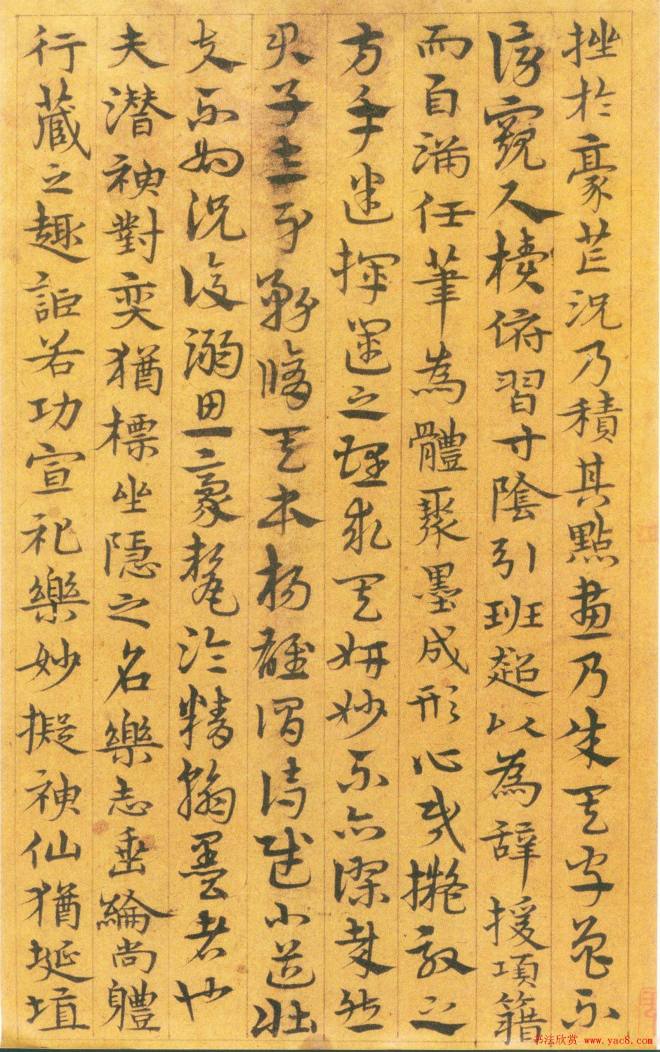 挫於豪芒況乃積其點畫乃成其字曾不
傍窺尺牘俯習寸陰引班超以為辭援項籍
而自滿任筆為體聚墨成形心昏擬效之
方手迷揮運之理求其妍妙不亦謬哉然
君子立身務修其本楊雄謂詩賦小道壯
夫不為況復溺思豪氂淪精翰墨者也
夫潛神對奕猶標坐隱之名樂志垂綸尚體
行藏之趣詎若功宣礼樂妙擬神仙猶埏埴
书法欣赏 www.yac8.com